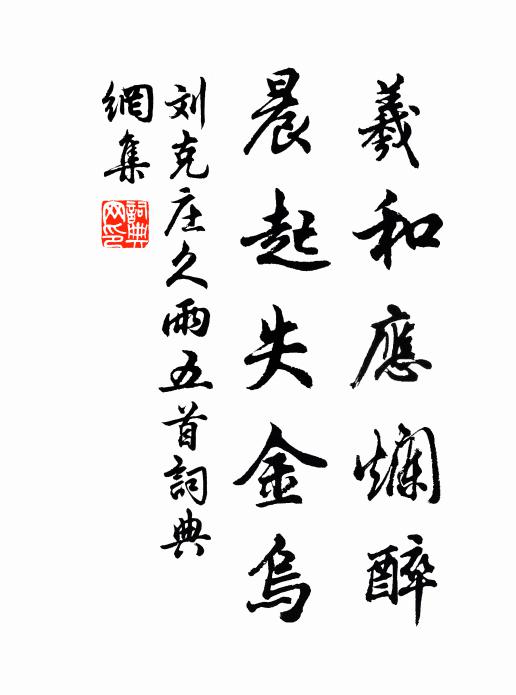 羲和應爛醉
晨起失金烏
刘克庄久雨五首詞典
網集
詞典網印